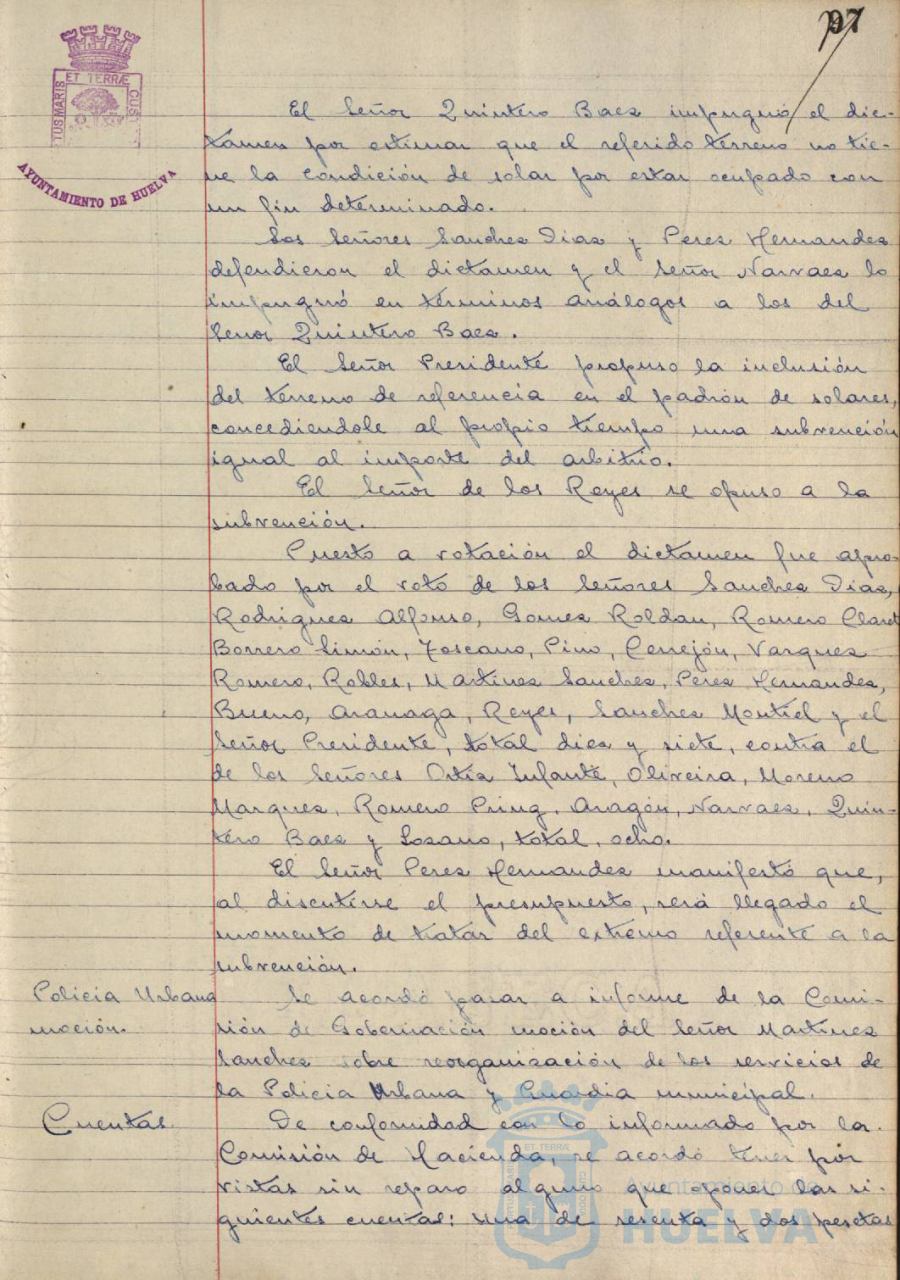 97
ET TERRÆ
TUS MARIS
CUS
AYUNTAMIENTO DE HUELVA
El Señor Quintero Baez impugnó el dic-
tamen por estimar que el referido terreno no tie-
ne la condición de solar por estar ocupado con
un fin determinado.
Los Señores Sanchez Diaz y Perez Hernandez
defendieron el dictamen y el Señor Narvaez lo
impugnó en términos análogos a los del
Señor Quintero Baez.
El Señor Presidente propuso la inclusión
del terreno de referencia en el padrón de solares,
concediendole al propio tiempo una subvención
igual al importe del arbitrio.
El Señor de los Reyes se opuso a la
subvención.
Puesto a votación el dictamen fue apro-
bado por el voto de los Señores Sanchez Diaz,
Rodriguez Alfonso, Gomez Roldan, Romero Claret
Borrero Simón, Toscano, Pino, Cerrejón, Vazquez
Romero, Robles, Martinez Sanchez, Perez Hernandez,
Bueno, Aranaga, Reyes, Sanchez Montiel y el
Señor Presidente, total diez y siete, contra el
de los Señores Ortiz Infante, Oliveira, Moreno
Marquez, Romero Pring, Aragón, Narvaez, Quin-
tero Baez y Lozano, total, ocho.
El Señor Perez Hernandez manifestó que,
al discutirse el presupuesto, será llegado el
momento de tratar del extremo referente a la
subvención.
Policia Urbana
moción.
Se acordó pasar a informe de la Comi-
sión de Gobernación moción del Señor Martinez
Sanchez sobre reorganización de los servicios de
la Policia Urbana y Guardia municipal.
Cuentas.
De conformidad con lo informado por la
Comisión de Hacienda, se acordó tener por
vistas sin reparo alguno que oponer las si-
guientes cuentas: una de sesenta y dos pesetas
ET TERRÆ
Ayuntamiento de
HUELVA